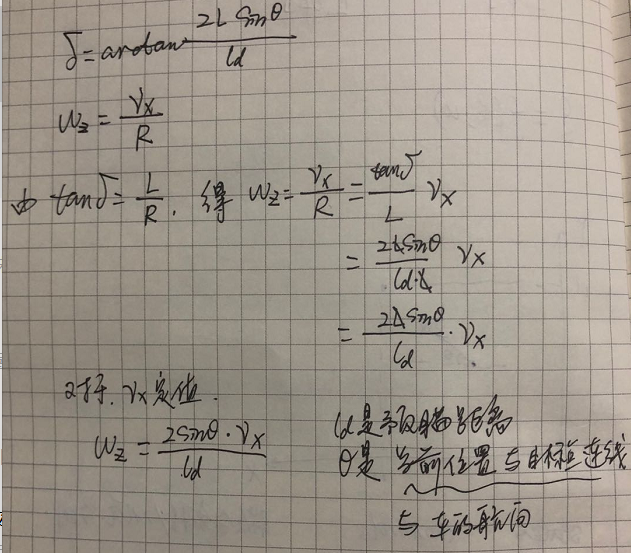 δ = arctan 2L sinθ / ld
ωz = Vx / R
由 tanδ = L / R . 得 ωz = Vx / R = tanδ / L Vx
= 2L sinθ / ld·L Vx
= 2 sinθ / ld · Vx
对于. Vx 定值.
ωz = 2sinθ · Vx / ld
ld 是 预瞄距离
θ是 当前位置与目标点连线
与 车的航向